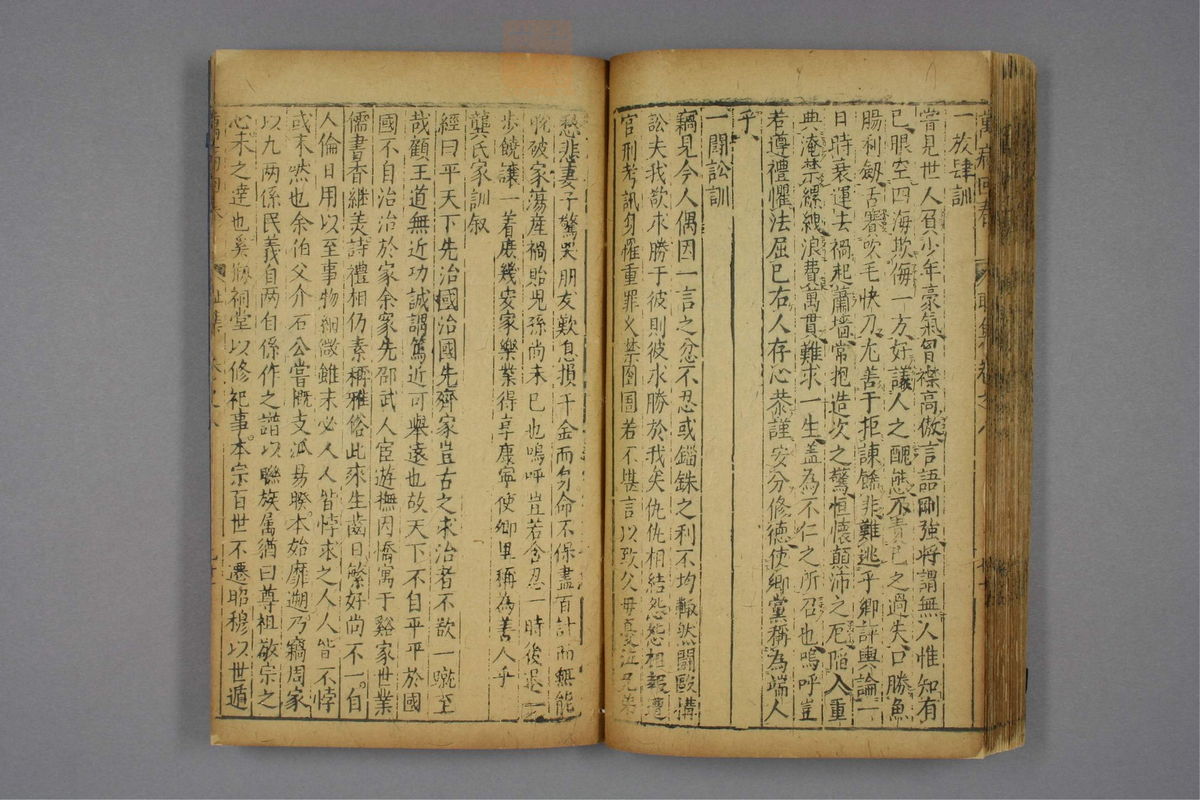 萬病回春
一放肆訓
嘗見世人負少年豪氣胷襟高傲言語剛強將謂無人惟知有
己眼空四海欺侮一方好議人之醜態不責己之過失口勝魚
腸利劍舌賽吹毛快刀尤善于拒諫餙非難逃乎鄉評輿論一
日時衰運去禍起蕭墻常抱造次之驚恒懷顛沛之厄陷入重
典淹禁縲絏浪費萬貫難求一生盖為不仁之所召也嗚呼豈
若遵禮懼法屈己右人存心恭謹安分修德使鄉黨稱為端人
乎
一鬪訟訓
竊見今人偶因一言之忿不忍或錙銖之利不均輙然鬪毆搆
訟夫我欲求勝于彼則彼求勝於我矣仇仇相結怨怨相報遭
官刑考訊身罹重罪乂禁囹圄若不堪言以致父母憂泣兄弟
愁悲妻子驚哭朋友歎息損千金而身命不保盡百計而無能
脫破家蕩産禍貽兒孫尚未已也嗚呼豈若含忍一時後退一
步饒讓一着庶幾安家樂業得享康寧使鄉里稱為善人乎
龔氏家訓叙
經曰平天下先治國治國先齊家豈古之求治者不欲一蹴至
哉顧王道無近功誠謂篤近可舉遠也故天下不自平平於國
國不自治治於家余家先邵武人宦遊撫因僑寓于谿家世業
儒書香繼美詩禮相仍素稱雅俗此來生齒日繁好尚不一自
人倫日用以至事物細微雖未必人人皆悖求之人人皆不悖
或未然也余伯父介石公嘗慨支派易睽本始靡遡乃竊周家
以九两係民義自两自係作之譜以聯族属猶曰尊祖敬宗之
心未之達也奚祠堂以修祀事本宗百世不遷昭穆以世遞